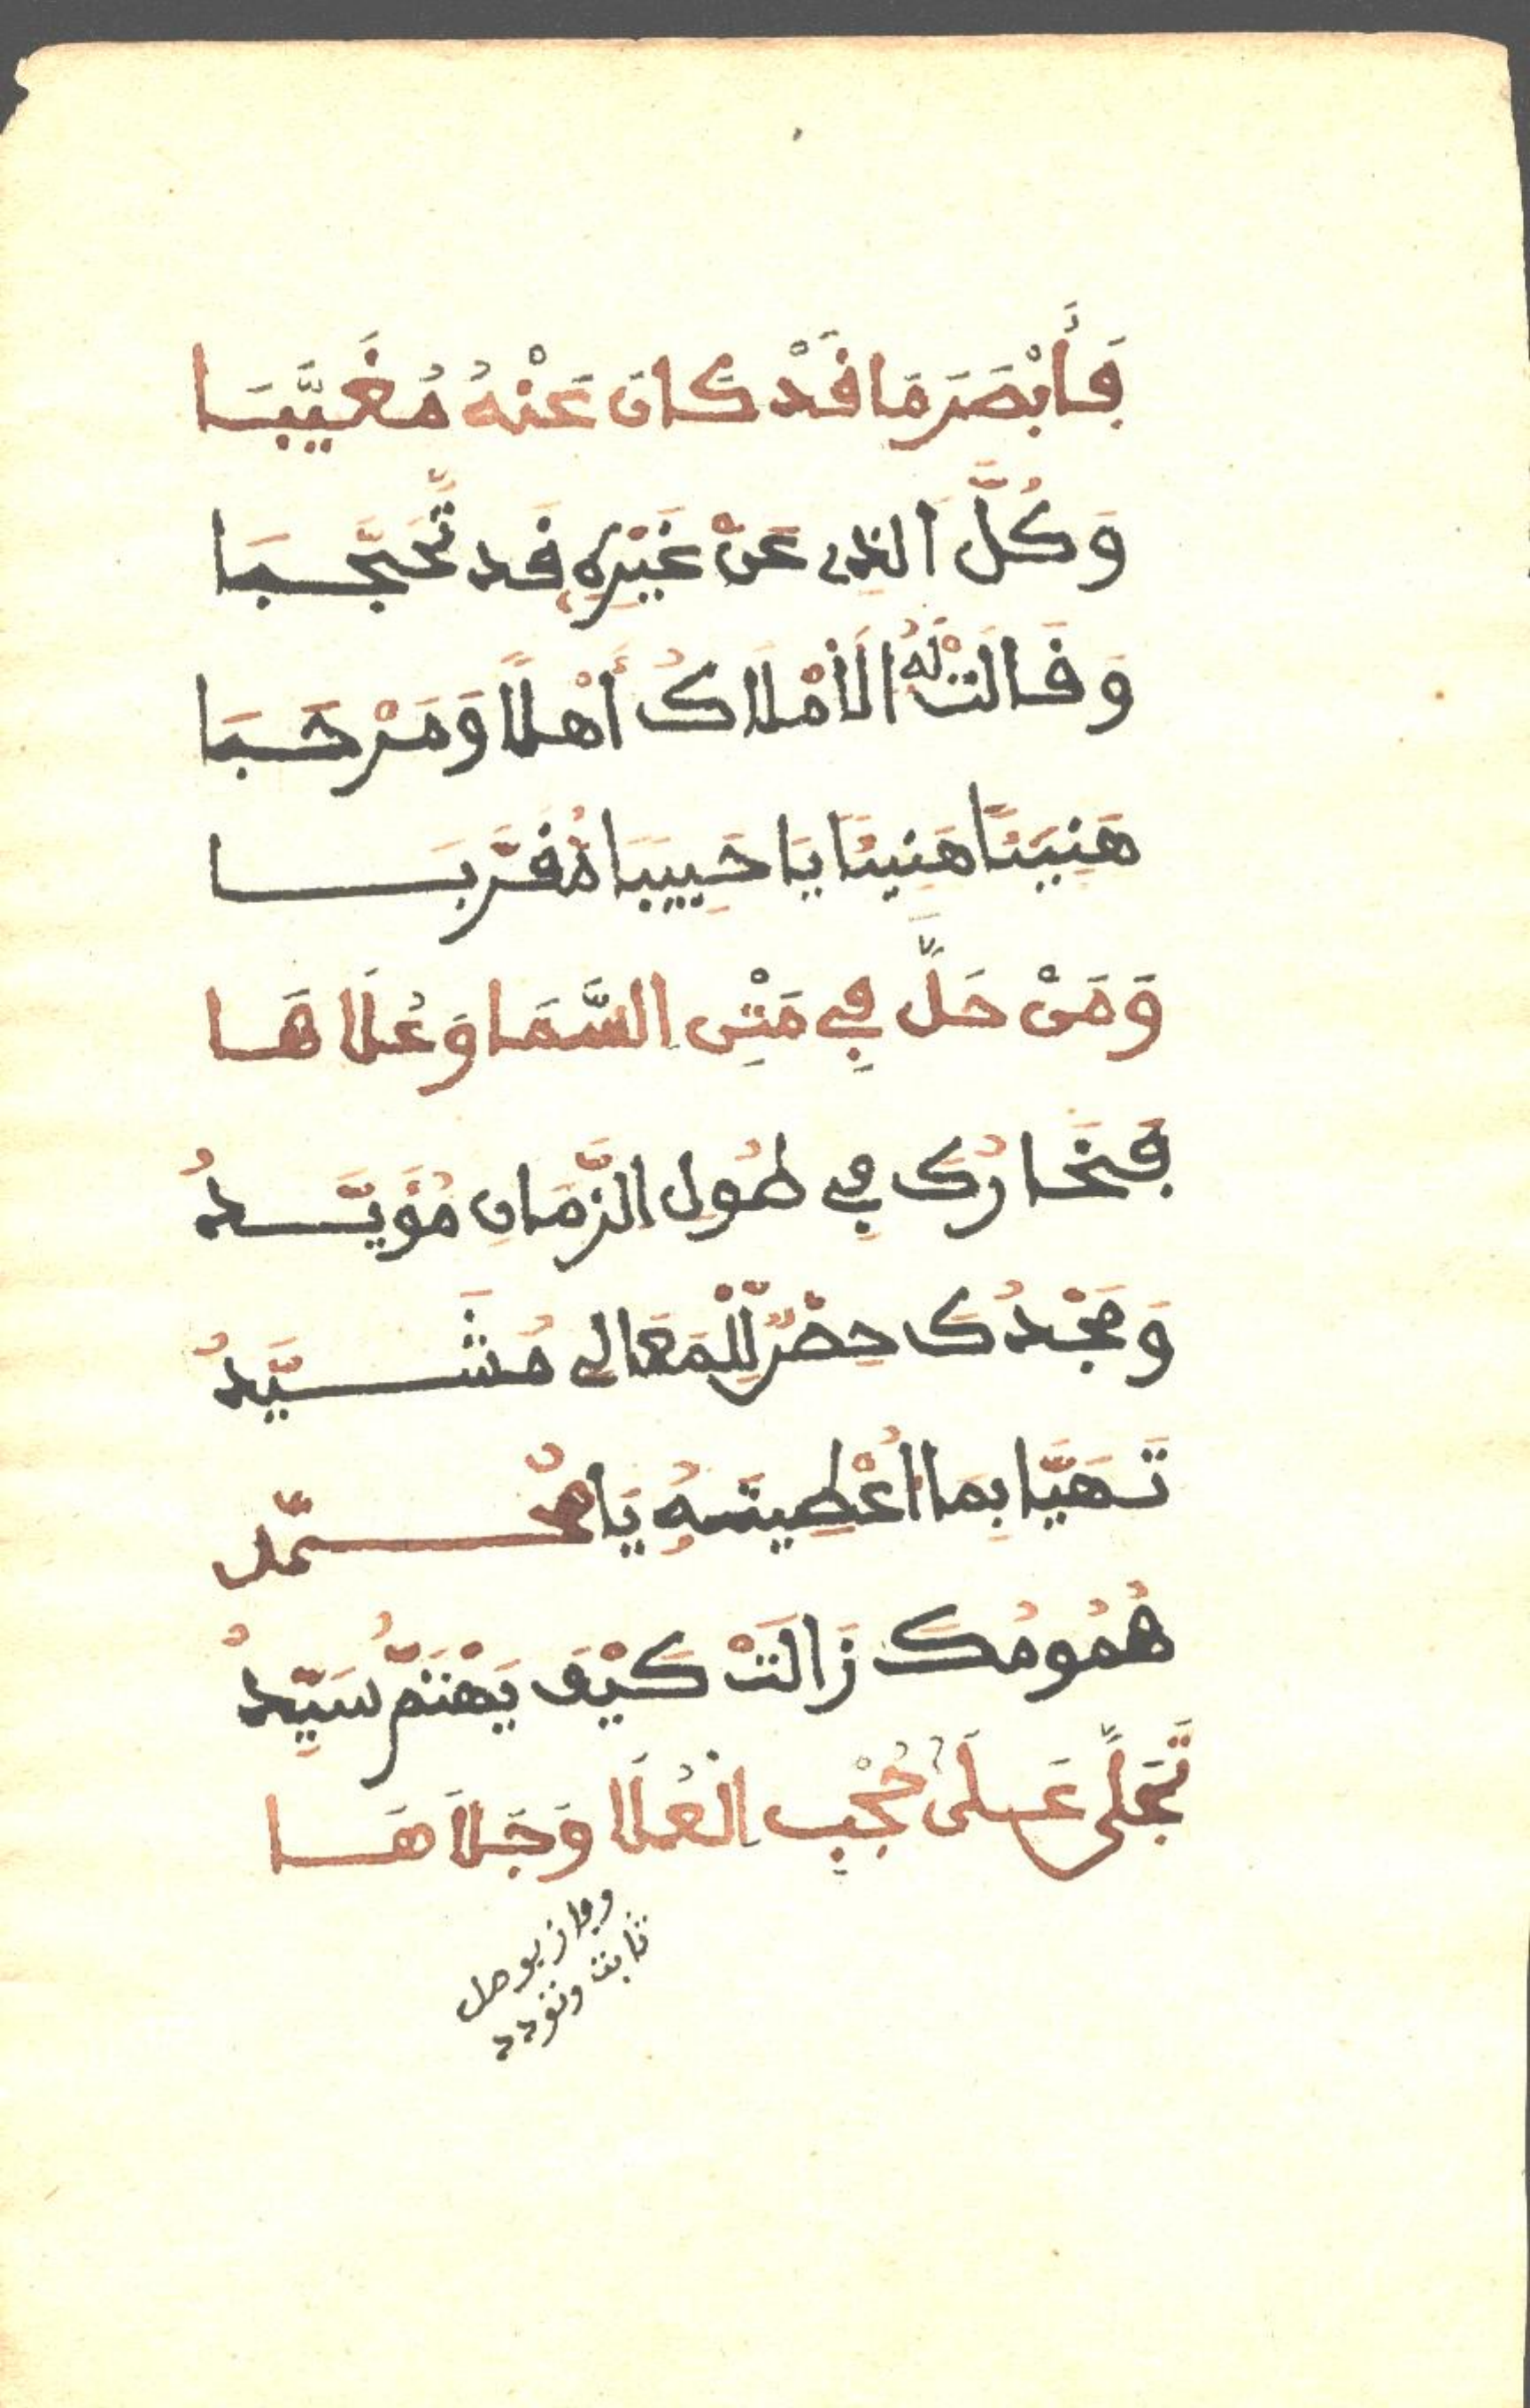 فَأَبْصَرَ مَا قَدْ كَانَ عَنْهُ مُغَيَّبَا
وَكُلَّ الذِي عَنْ غَيْرِهِ قَد تَّحَجَّبَا
وَقَالَتْ لَهُ الَامْلَاكُ أَهْلًا وَمَرْحَبَا
هَنِيئًا هَنِيئًا يَا حَبِيبًا مُقَرَّبَا
وَمَنْ حَلَّ فِي مَتْنِ السَّمَا وَعُلَاهَا
فَخَارُكَ فِي طُولِ الزَّمَانِ مُؤَيَّدُ
وَمَجْدُكَ حِصْنٌ لِّلْمَعَالِي مُشَيَّدُ
تَهَيَّا بِمَا اُعْطِيتَهُ يَا مُحَمَّد
هُمُومُكَ زَالَتْ كَيْفَ يَهْتَمُّ سَيِّدُ
تَجَلَّى عَلَى حُجْبِ الْعُلَا وَجَلَاهَا